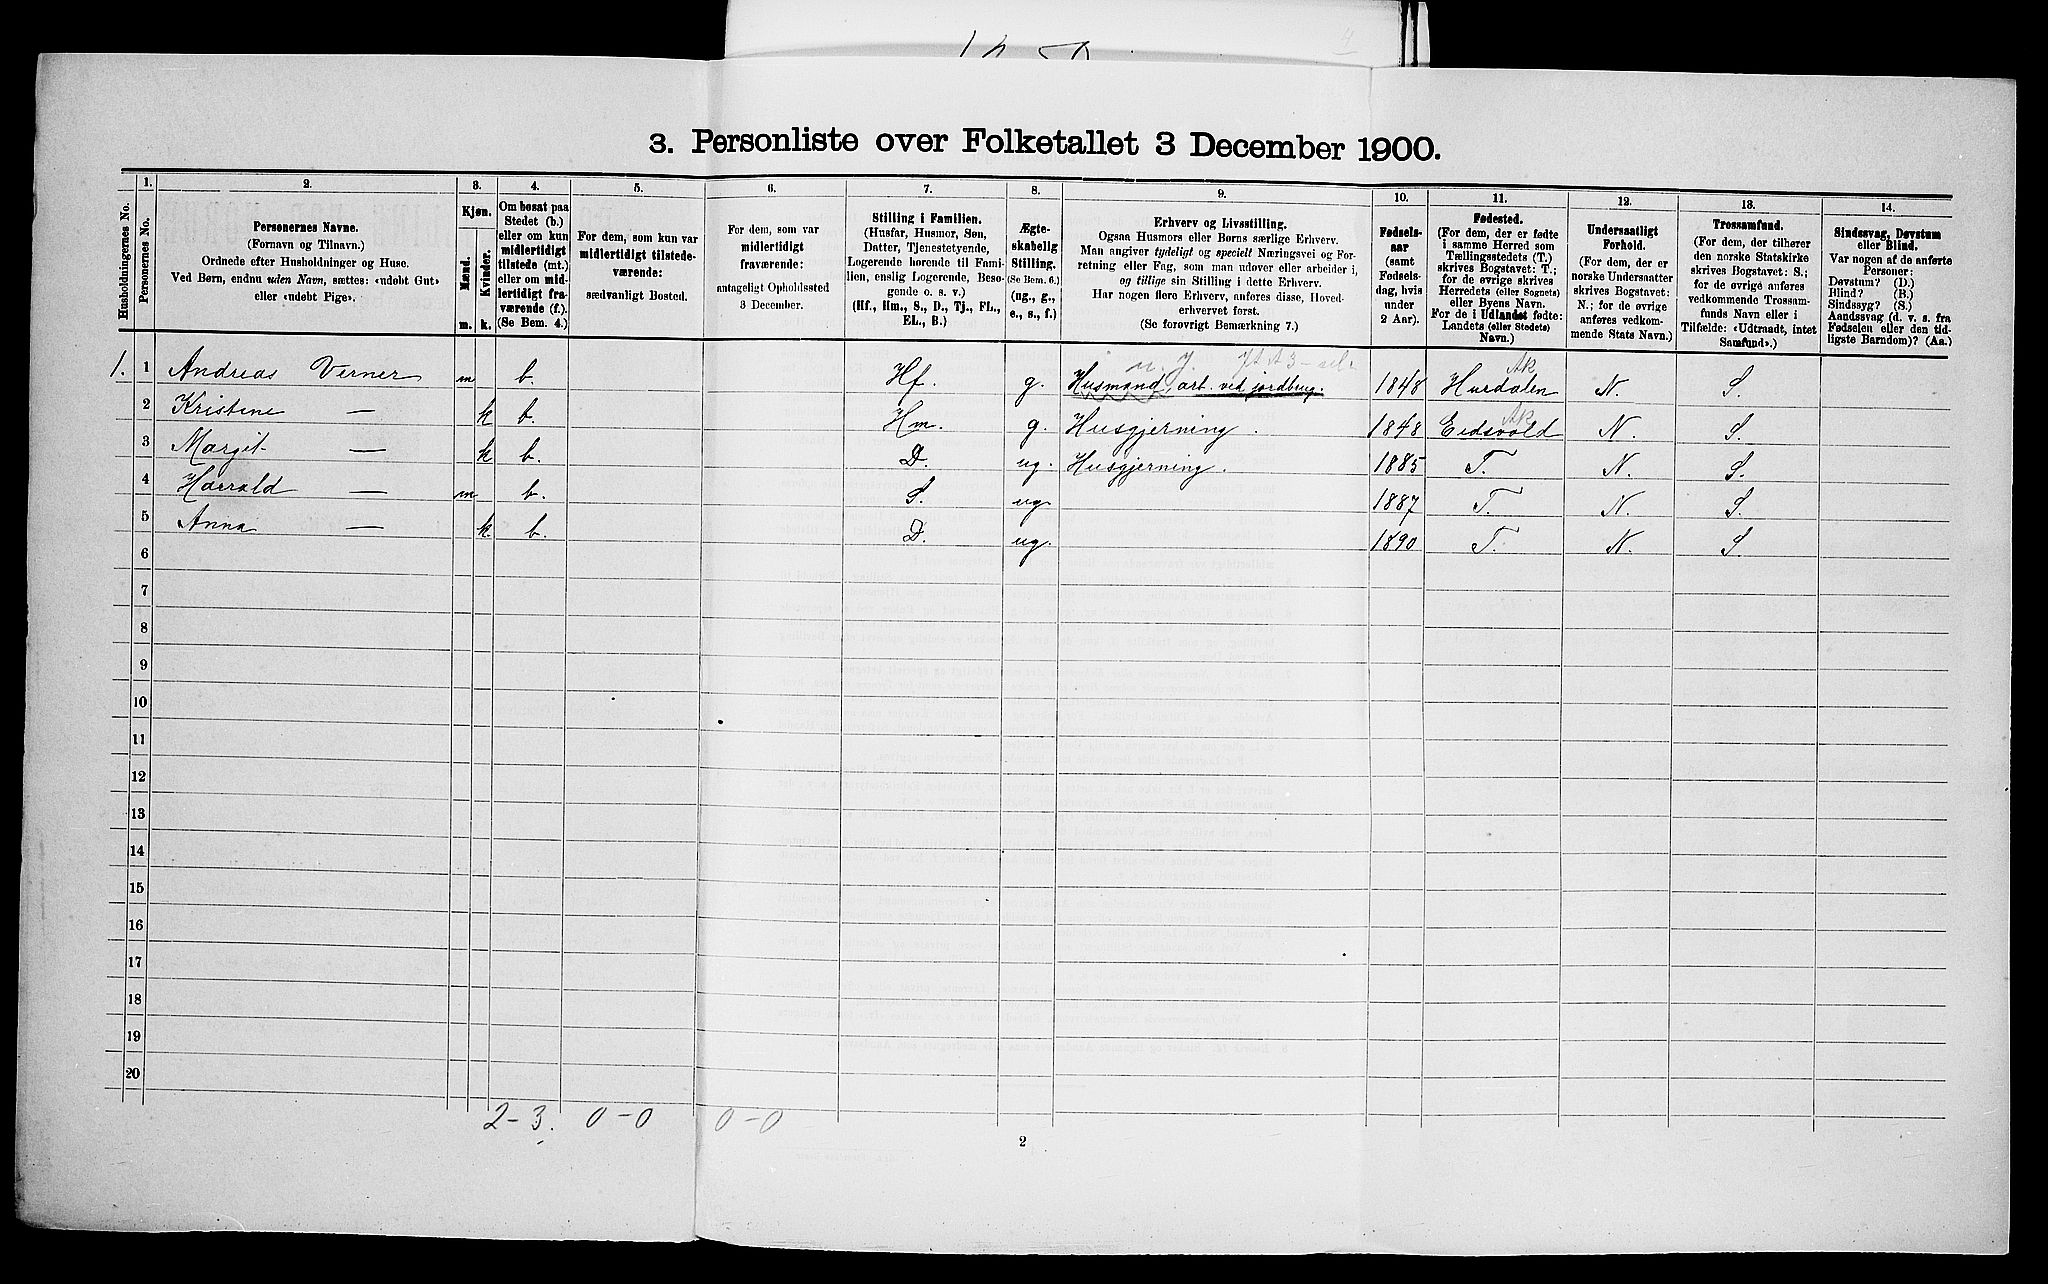 3. Personliste over Folketallet 3 December 1900.
Husholdningernes No.
1.
Personernes No.
2.
Personernes Navne.
(Fornavn og Tilnavn.)
Ordnede efter Husholdninger og Huse.
Ved Børn, endnu uden Navn, sættes: «udøbt Gut»
eller «udøbt Pige».
3.
Kjøn.
Mænd.
Kvinder.
m. k.
4.
Om bosat paa
Stedet (b.)
eller om kun
midlertidigt
tilstede (mt.)
eller om mid-
lertidigt fra-
værende (f.).
(Se Bem. 4.)
5.
For dem, som kun var
midlertidigt tilstede-
værende:
sædvanligt Bosted.
6.
For dem, som var
midlertidigt
fraværende:
antageligt Opholdssted
3 December.
7.
Stilling i Familien.
(Husfar, Husmor, Søn,
Datter, Tjenestetyende,
Logerende hørende til Fami-
lien, enslig Logerende, Besø-
gende o. s. v.)
(Hf., Hm., S., D., Tj., FL.,
EL., B.)
8.
Ægte-
skabelig
Stilling.
(Se Bem. 6.)
(ug., g.,
e., s., f.)
9.
Erhverv og Livsstilling.
Ogsaa Husmors eller Børns særlige Erhverv.
Man angiver tydeligt og specielt Næringsvei og For-
retning eller Fag, som man udøver eller arbeider i,
og tillige sin Stilling i dette Erhverv.
Har nogen flere Erhverv, anføres disse, Hoved-
erhvervet først.
(Se forøvrigt Bemærkning 7.)
10.
Fødsels-
aar
(samt
Fødsels-
dag, hvis
under
2 Aar).
11.
Fødested.
(For dem, der er fødte
i samme Herred som
Tællingsstedets (T.)
skrives Bogstavet: T.;
for de øvrige skrives
Herredets (eller Sognets)
eller Byens Navn.
For de i Udlandet fødte:
Landets (eller Stedets)
Navn.)
12.
Undersaatligt
Forhold.
(For dem, der er
norske Undersaatter
skrives Bogstavet:
N.; for de øvrige
anføres vedkom-
mende Stats Navn.)
13.
Trossamfund.
(For dem, der tilhører
den norske Statskirke
skrives Bogstavet: S.;
for de øvrige anføres
vedkommende Trossam-
funds Navn eller i
Tilfælde: «Udtraadt, intet
Samfund».)
14.
Sindssvag, Døvstum
eller Blind.
Var nogen af de anførte
Personer:
Døvstum? (D.)
Blind? (B.)
Sindssyg? (S.)
Aandssvag (d. v. s. fra
Fødselen eller den tid-
ligste Barndom)? (Aa.)
1. 1 Andreas Verner m b. Hf. g. Husmand, arb. ved jordbrug. 1848 Hurdalen Ak N. S.
2 Kristine — k b. Hm. g. Husgjerning. 1848 Eidsvold Ak N. S.
3 Margit — k b. D. ug. Husgjerning. 1885 T. N. S.
4 Harald — m b. S. ug. 1887 T. N. S.
5 Anna — k b. D. ug. 1890 T. N. S.
6
7
8
9
10
11
12
13
14
15
16
17
18
19
20
2-3. 0-0 0-0
2